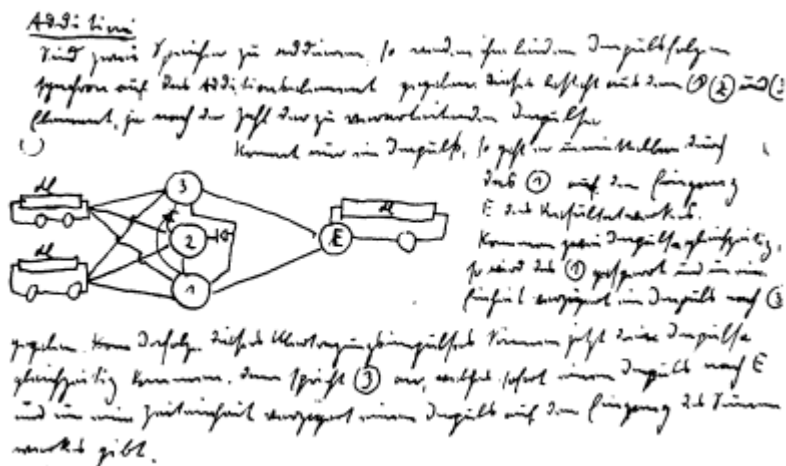 Addition
Sind zwei Speicher zu addieren, so werden ihre beiden Impulsfolgen
synchron auf das Additionselement gegeben. Dieses besteht aus dem ① ② und
Element, je nach der Zahl der zu verarbeitenden Impulse
Kommt nur ein Impuls, so geht er unmittelbar durch
das ① auf den Eingang
E des Resultatwerkes.
Kommen zwei Impulse gleichzeitig,
so wird das ① gesperrt und um eine
Einheit verzögert ein Impuls nach ③
dl
3
dl
2
E
dl
1
gegeben. Infolge dieses Übertragungsimpulses können jetzt drei Impulse
gleichzeitig kommen, dann spricht ③ an, welches sofort einen Impuls nach E
und um eine Zeiteinheit verzögert einen Impuls auf den Eingang des
werkes gibt.